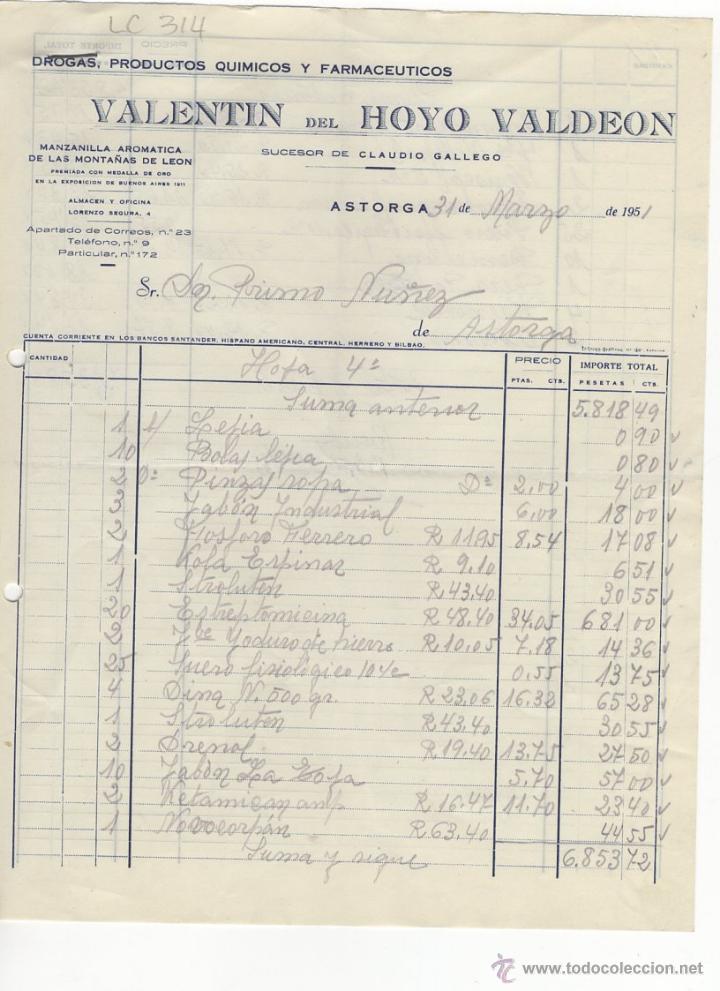 LC 314
DROGAS, PRODUCTOS QUIMICOS Y FARMACEUTICOS
VALENTIN DEL HOYO VALDEON
SUCESOR DE CLAUDIO GALLEGO
MANZANILLA AROMATICA
DE LAS MONTAÑAS DE LEON
PREMIADA CON MEDALLA DE ORO
EN LA EXPOSICION DE BUENOS AIRES 1911
ALMACEN Y OFICINA
LORENZO SEGURA, 4
Apartado de Correos, n.º 23
Teléfono, n.º 9
Particular, n.º 172
ASTORGA 31 de Marzo de 1951
Sr. Dn. Primo Nuñez
de Astorga
CUENTA CORRIENTE EN LOS BANCOS SANTANDER, HISPANO AMERICANO, CENTRAL, HERRERO Y BILBAO.
CANTIDAD Hoja 4ª PRECIO IMPORTE TOTAL
PTAS. CTS. PESETAS CTS.
Suma anterior 5.818 49
1 Lejia 0 90
10 Bolas lejia 0 80
2 Dª Pinzas ropa Dª 2,00 4 00
3 Jabón Industrial 6,00 18 00
2 Fosforo Ferrero R 11.95 8.54 17 08
1 Kola Espinar R 9.10 6 51
1 Stroluten R 43.40 30 55
20 Estreptomicina R 48.40 34.05 681 00
2 Yoduro de hierro R 10.05 7.18 14 36
25 Suero fisiológico 10 0.55 13 75
4 Dinq N. 500 gr. R 23.06 16.32 65 28
1 Stroluten R 43.40 30 55
2 Drenol R 19.40 13.75 27 50
10 Jabón La Toja 5.70 57 00
2 Ketamican amp R 16.47 11.70 23 40
1 Novocorpán R 63.40 44 55
Suma y sigue 6.853 72
www.todocoleccion.net